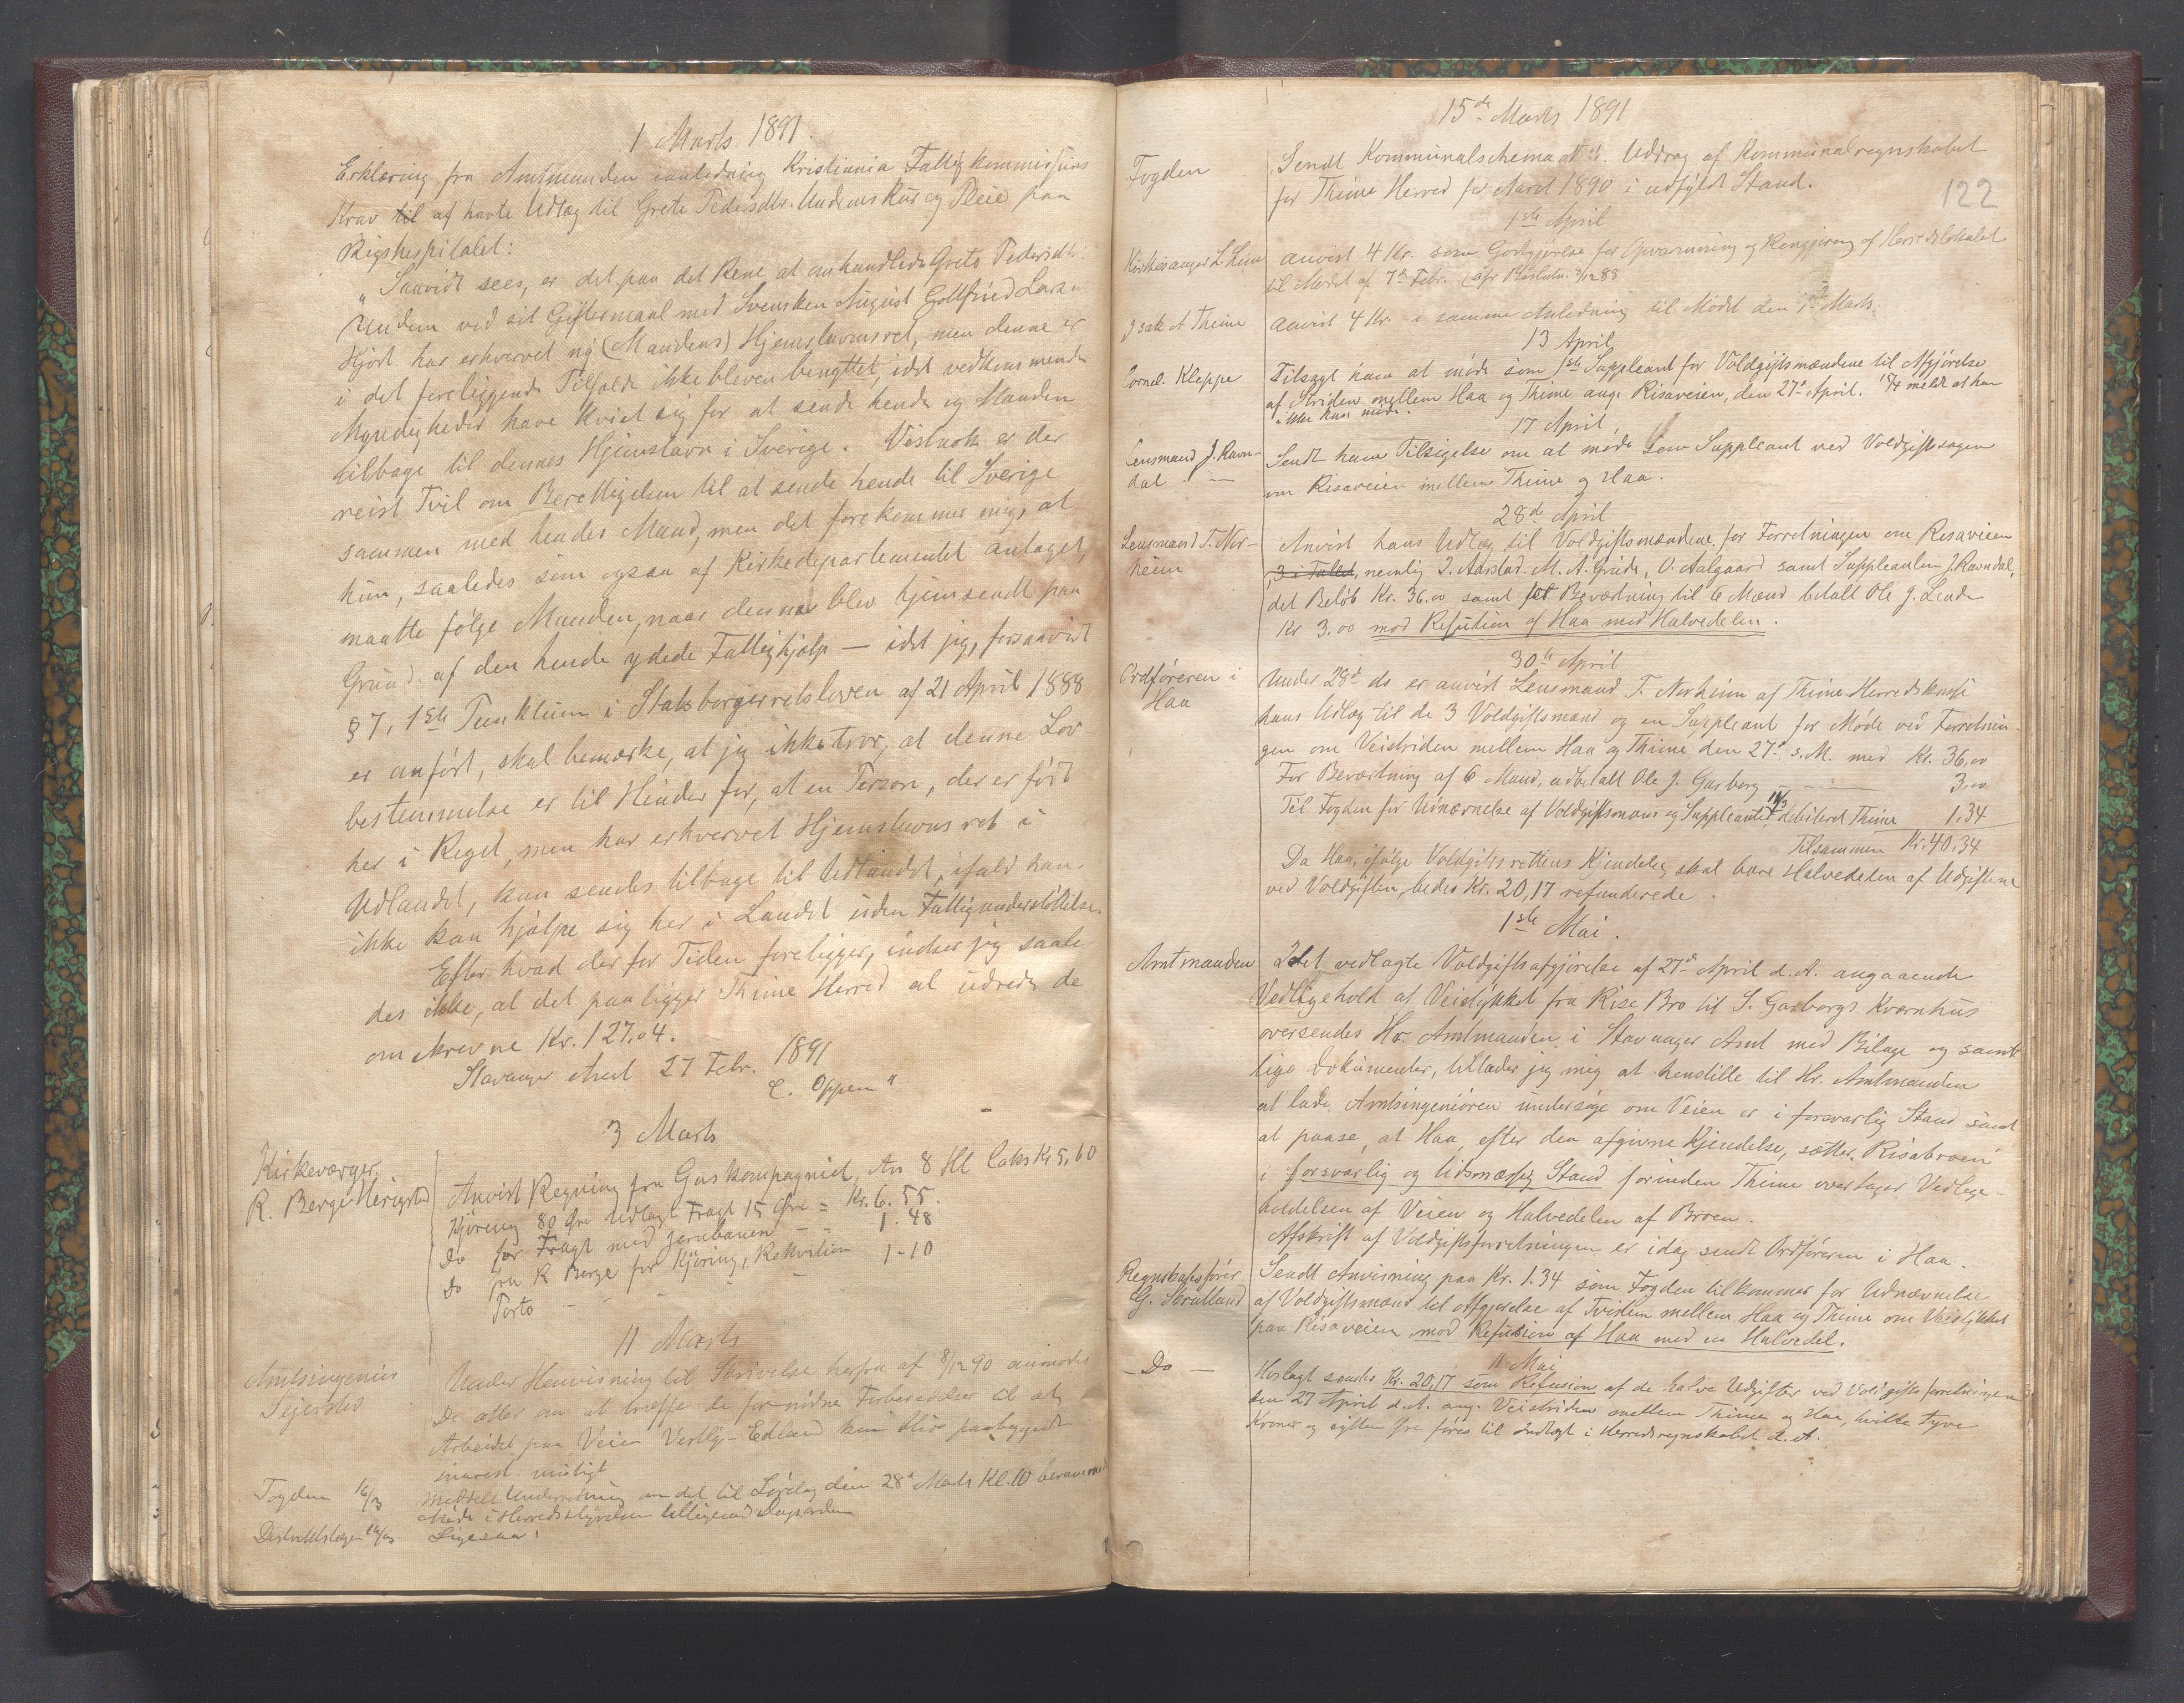 1 Marts 1891.
Erklæring fra Amtmanden i anledning Kristiania Fattigkommissions
Krav til af havte Udlæg til Grete Pedersdtr. Undems Kur og Pleie paa
Rigshospitalet:
"Saavidt sees, er det paa det Rene at anhandlede Grete Pedersdtr.
Undem ved sit Giftermaal med Svensken August Gottfried Lars
Hjort har erhvervet ny (Mandens) Hjemstavnsret, men denne er
i det foreliggende Tilfælde ikke bleven benyttet, idet vedkommende
Myndigheder have kviet sig for at sende hende og Manden
tilbage til dennes Hjemstavn i Sverige. Vistnok er der
reist Tvil om Berettigelsen til at sende hende til Sverige
sammen med hendes Mand, men det forekommer mig, at
hun, saaledes som ogsaa af Kirkedepartementet antaget,
maatte følge Manden, naar denne blev hjemsendt paa
Grund af den hende ydede Fattighjælp — idet jeg, forsaavidt
§ 7, 1ste Punktum i Statsborgerretsloven af 21 April 1888
er anført, skal bemærke, at jeg ikke tror, at denne Lov
bestemmelse er til Hinder for, at en Person, der er født
her i Riget, men har erhvervet Hjemstavnsret i
Udlandet, kan sendes tilbage til Udlandet, ifald han
ikke kan hjælpe sig her i Landet uden Fattigunderstøttelse.
Efter hvad der for Tiden foreligger, indser jeg saale
des ikke, at det paaligger Thime Herred at udrede de
omskrevne Kr. 127.04.
Stavanger Amt 27 Febr. 1891
C. Oppen"
3 Marts
Kirkeværger
R. Berge Herigstad
Anvist Regning fra Gaskompagniet, An 8 Hl Coks Kr 5,60
Kjøring 80 Øre Udlagt Fragt 15 Øre = Kr. 6.55.
Do for Fragt med Jernbanen - - 1.48
Do fra R Berge for Kjøring, Rekvisition 1-10
Porto - - - -
11 Marts
Amtsingeniør
Sejersted
Under Henvisning til Skrivelse herfra af 8/12 90 anmodes
De atter om at træffe de fornødne Forberedelser til at
Arbeidet paa Veien Vestly - Edland kan blive paabegyndt
snarest muligt
Fogden 16/3
Meddelt Underretning om det til Lørdag den 28de Marts Kl. 10 berammede
Møde i Herredsstyrelsen tilligemed Dagsorden
Distriktslægen 16/3
Ligesaa.
15de Marts 1891
122
Fogden
Sendt Kommunalschema No 1. Uddrag af Kommunalregnskabet
for Thime Herred for Aaret 1890 i udfyldt Stand.
1ste April
Kirkesanger L Hime
Anvist 4 Kr. som Godtgjørelse for Opvarmning og Rengjøring af Herredslokalet
til Mødet af 7de Febr. (efr Beslutn. 8/12 88
Isak A Thime
Anvist 4 Kr. i samme Anledning til Mødet den 9de Marts.
13 April
Cornel. Kleppe
Tilsagt ham at møde som 1ste Suppleant for Voldgiftsmændene til Afgjørelse
af Striden mellem Haa og Thime ang. Risaveien, den 27de April. 17/4 meldt at han
ikke kan møde.
17 April
Lensmand J. Ravn-
dal —
Sendt ham Tilsigelse om at møde som Suppleant ved Voldgiftssagen
om Risaveien mellem Thime og Haa.
28de April
Lensmand T. Nor-
heim
Anvist hans Udlæg til Voldgiftsmændene for Forretningen om Risaveien
, 3 i Tallet, nemlig I. Aarstad. M. A. Grude, O. Aalgaard samt Suppleanten J. Ravndal,
det Beløb Kr. 36.00 samt for Beværtning til 6 Mænd betalt Ole J. Lende
Kr 3.00 mod Refusion af Haa med Halvedelen.
30te April
Ordføreren i
Haa
Under 28de ds er anvist Lensmand T. Norheim af Thime Herredskasse
hans Udlæg til de 3 Voldgiftsmænd og en Suppleant for Møde ved Forretnin-
gen om Veistriden mellem Haa og Thime den 27de s. M. med Kr. 36,00
For Beværtning af 6 Mand, udbetalt Ole J. Garborg - — 3.00
Til Fogden for Udnævnelse af Voldgiftsmænd og Suppleanter 14/3 debiteret Thime 1.34
Tilsammen Kr. 40.34
Da Haa, ifølge Voldgiftsrettens Kjendelse, skal bære Halvedelen af Udgifterne
ved Voldgiften, bedes Kr. 20,17 refunderede.
1ste Mai.
Amtmanden
Idet vedlagte Voldgiftsafgjørelse af 27de April d. A. angaaende
Vedligehold af Veistykket fra Rise Bro til S. Garborgs Kværnhus
oversendes Hr. Amtmanden i Stavanger Amt med Bilage og samt
lige Dokumenter, tillader jeg mig at henstille til Hr. Amtmanden
at lade Amtsingeniøren undersøge om Veien er i forsvarlig Stand samt
at paase, at Haa, efter den afgivne Kjendelse, sætter Risabroen
i forsvarlig og lidsmæssig Stand forinden Thime overtager Vedlige-
holdelsen af Veien og Halvedelen af Broen.
Afskrift af Voldgiftsforretningen er idag sendt Ordføreren i Haa.
Regnskabsfører
G. Skrudland
Sendt Anvisning paa Kr. 1.34 som Fogden tilkommer for Udnævnelse
af Voldgiftsmænd til Afgjørelse af Tvisten mellem Haa og Thime om Veistykket
paa Risaveien, mod Refusion af Haa med en Halvedel.
11 Mai
— Do —
Hoslagt sendes Kr. 20,17 som Refusion af de halve Udgifter ved Voldgiftsforretningen
den 27 April d. A. ang. Veistriden mellem Thime og Haa, hvilke tyve
Kroner og sytten Øre føres til Indtægt i Herredsregnskabet d. A.